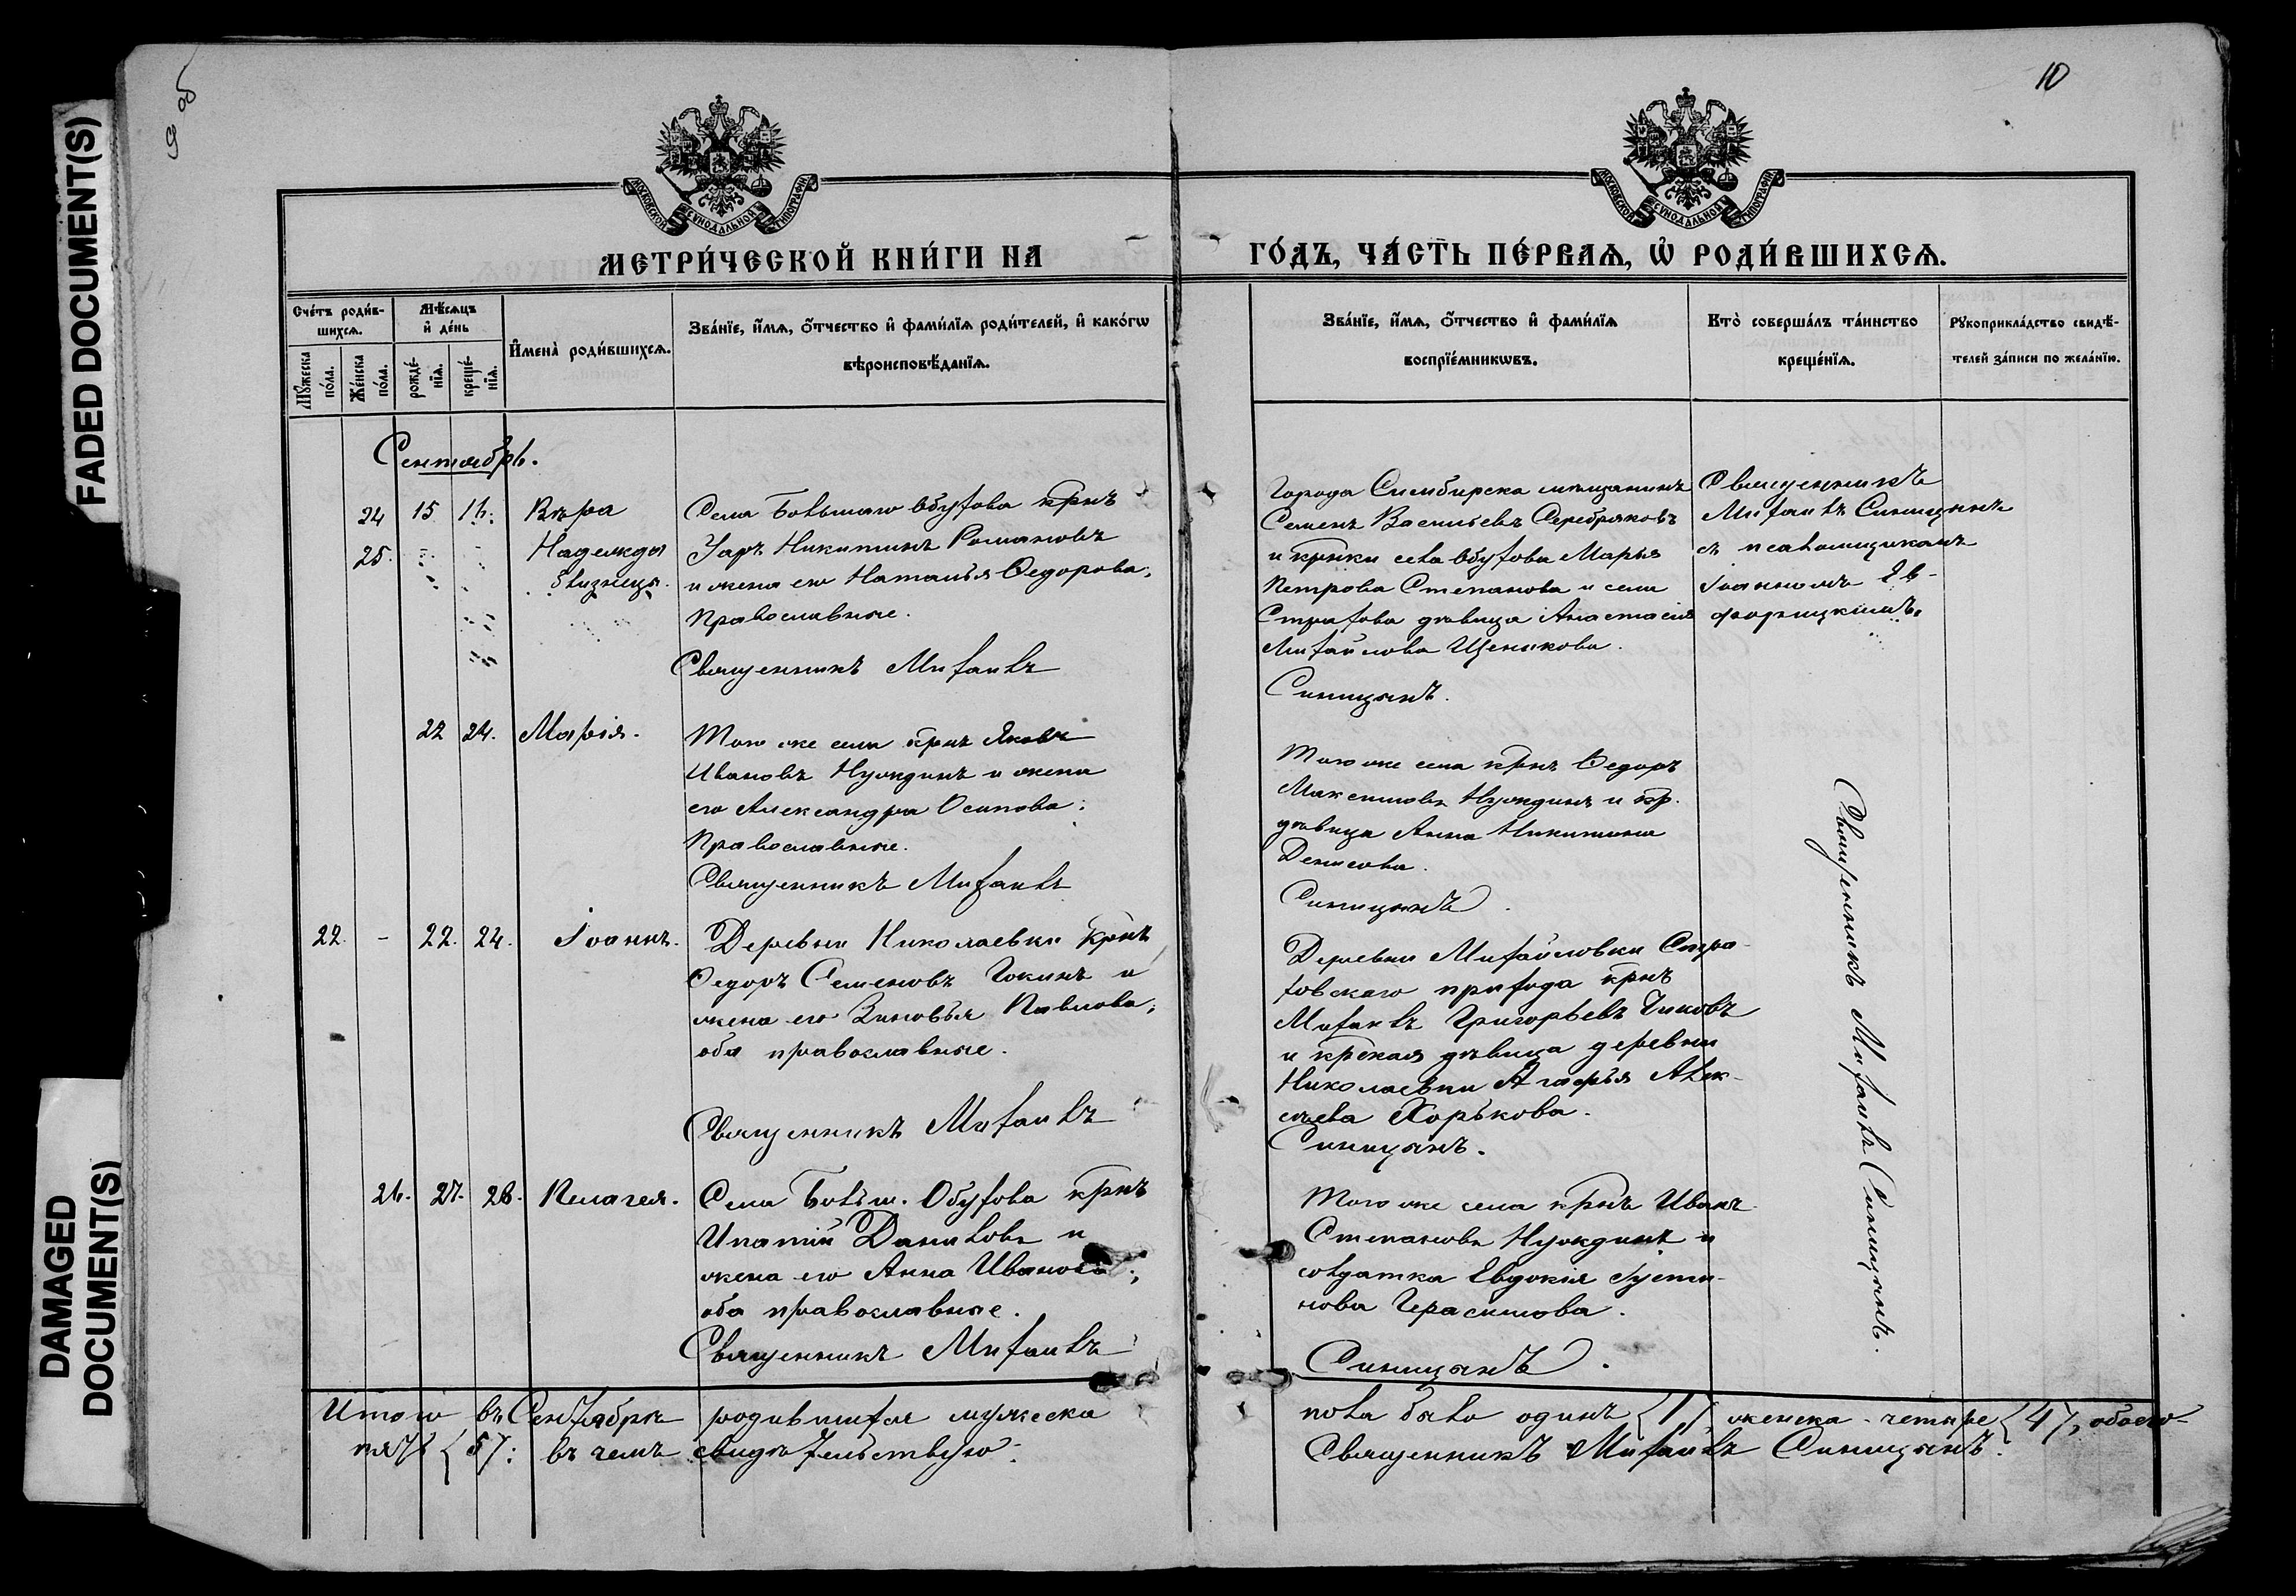 FADED DOCUMENT(S)
DAMAGED
DOCUMENT(S)
9 об
10
МОСКОВСКОЙ СУНОДАЛЬНОЙ ТИПОГРАФІИ
МОСКОВСКОЙ СУНОДАЛЬНОЙ ТИПОГРАФІИ
МЕТРИ́ЧЕСКОЙ КНИ́ГИ НА
ГО́ДЪ, ЧА́СТЬ ПЕ́РВАѦ, Ѡ҆ РОДИ́ВШИХСѦ.
Сче́тъ роди́в-
шихсѧ.
Мꙋ́жеска
по́ла.
Же́нска
по́ла.
Мѣ́сѧцъ
и҆ де́нь
рожде́-
нїѧ.
креще́-
нїѧ.
И҆мена̀ роди́вшихсѧ.
Зва́нїе, и҆́мѧ, ѻ҆́тчество и҆ фами́лїѧ роди́телей, и҆ како́гѡ
вѣроисповѣ́данїѧ.
Зва́нїе, и҆́мѧ, ѻ҆́тчество и҆ фами́лїѧ
воспрїе́мникѡвъ.
Кто̀ соверша́лъ та́инство
креще́нїѧ.
Рꙋкоприкла́дство свидѣ́-
телей за́писи по жела́нїю.
Сентябрь.
24 15 16. Вѣра
25. Надежда
близнецы.
Села Большаго Обухова крнъ
Уаръ Никитинъ Романовъ
и жена его Наталья Ѳедорова;
православные.
Священникъ Михаилъ
Города Симбирска мѣщанинъ
Семенъ Васильевъ Серебряковъ
и крнки села Обухова Марья
Петрова Степанова и села
Страхова дѣвица Анастасія
Михайлова Щенякова.
Синицынъ.
Священникъ
Михаилъ Синицынъ
съ псаломщикомъ
Іоанномъ Ев-
форицкимъ.
22 24. Марія.
Того же села крнъ Яковъ
Ивановъ Нуждинъ и жена
его Александра Осипова;
Православные.
Священникъ Михаилъ
Того же села крнъ Ѳедоръ
Максимовъ Нуждинъ и кр.
дѣвица Анна Никитина
Денисова.
Синицынъ
22. - 22. 24. Іоаннъ.
Деревни Николаевки крнъ
Ѳедоръ Семеновъ Гокинъ и
жена его Зиновья Павлова;
оба православные.
Священникъ Михаилъ
Деревни Михайловки Стра-
ховскаго прихода крнъ
Михаилъ Григорьевъ Чиковъ
и крская дѣвица деревни
Николаевки Агафья Алек-
сѣева Хорькова.
Синицынъ.
26. 27. 28. Пелагея.
Села Больш. Обухова крнъ
Ипатій Даниловъ и
жена его Анна Иванова;
оба православные.
Священникъ Михаилъ
Того же села крнъ Иванъ
Степановъ Нуждинъ и
солдатка Евдокія Іусти-
нова Герасимова.
Синицынъ.
Священникъ Михаилъ Синицынъ.
Итого въ Сентябрѣ родившихся мужеска пола было одинъ {1} женска - четыре {4}, обоего -
пять {5}: въ чемъ свидѣтельствую: Священникъ Михаилъ Синицынъ.